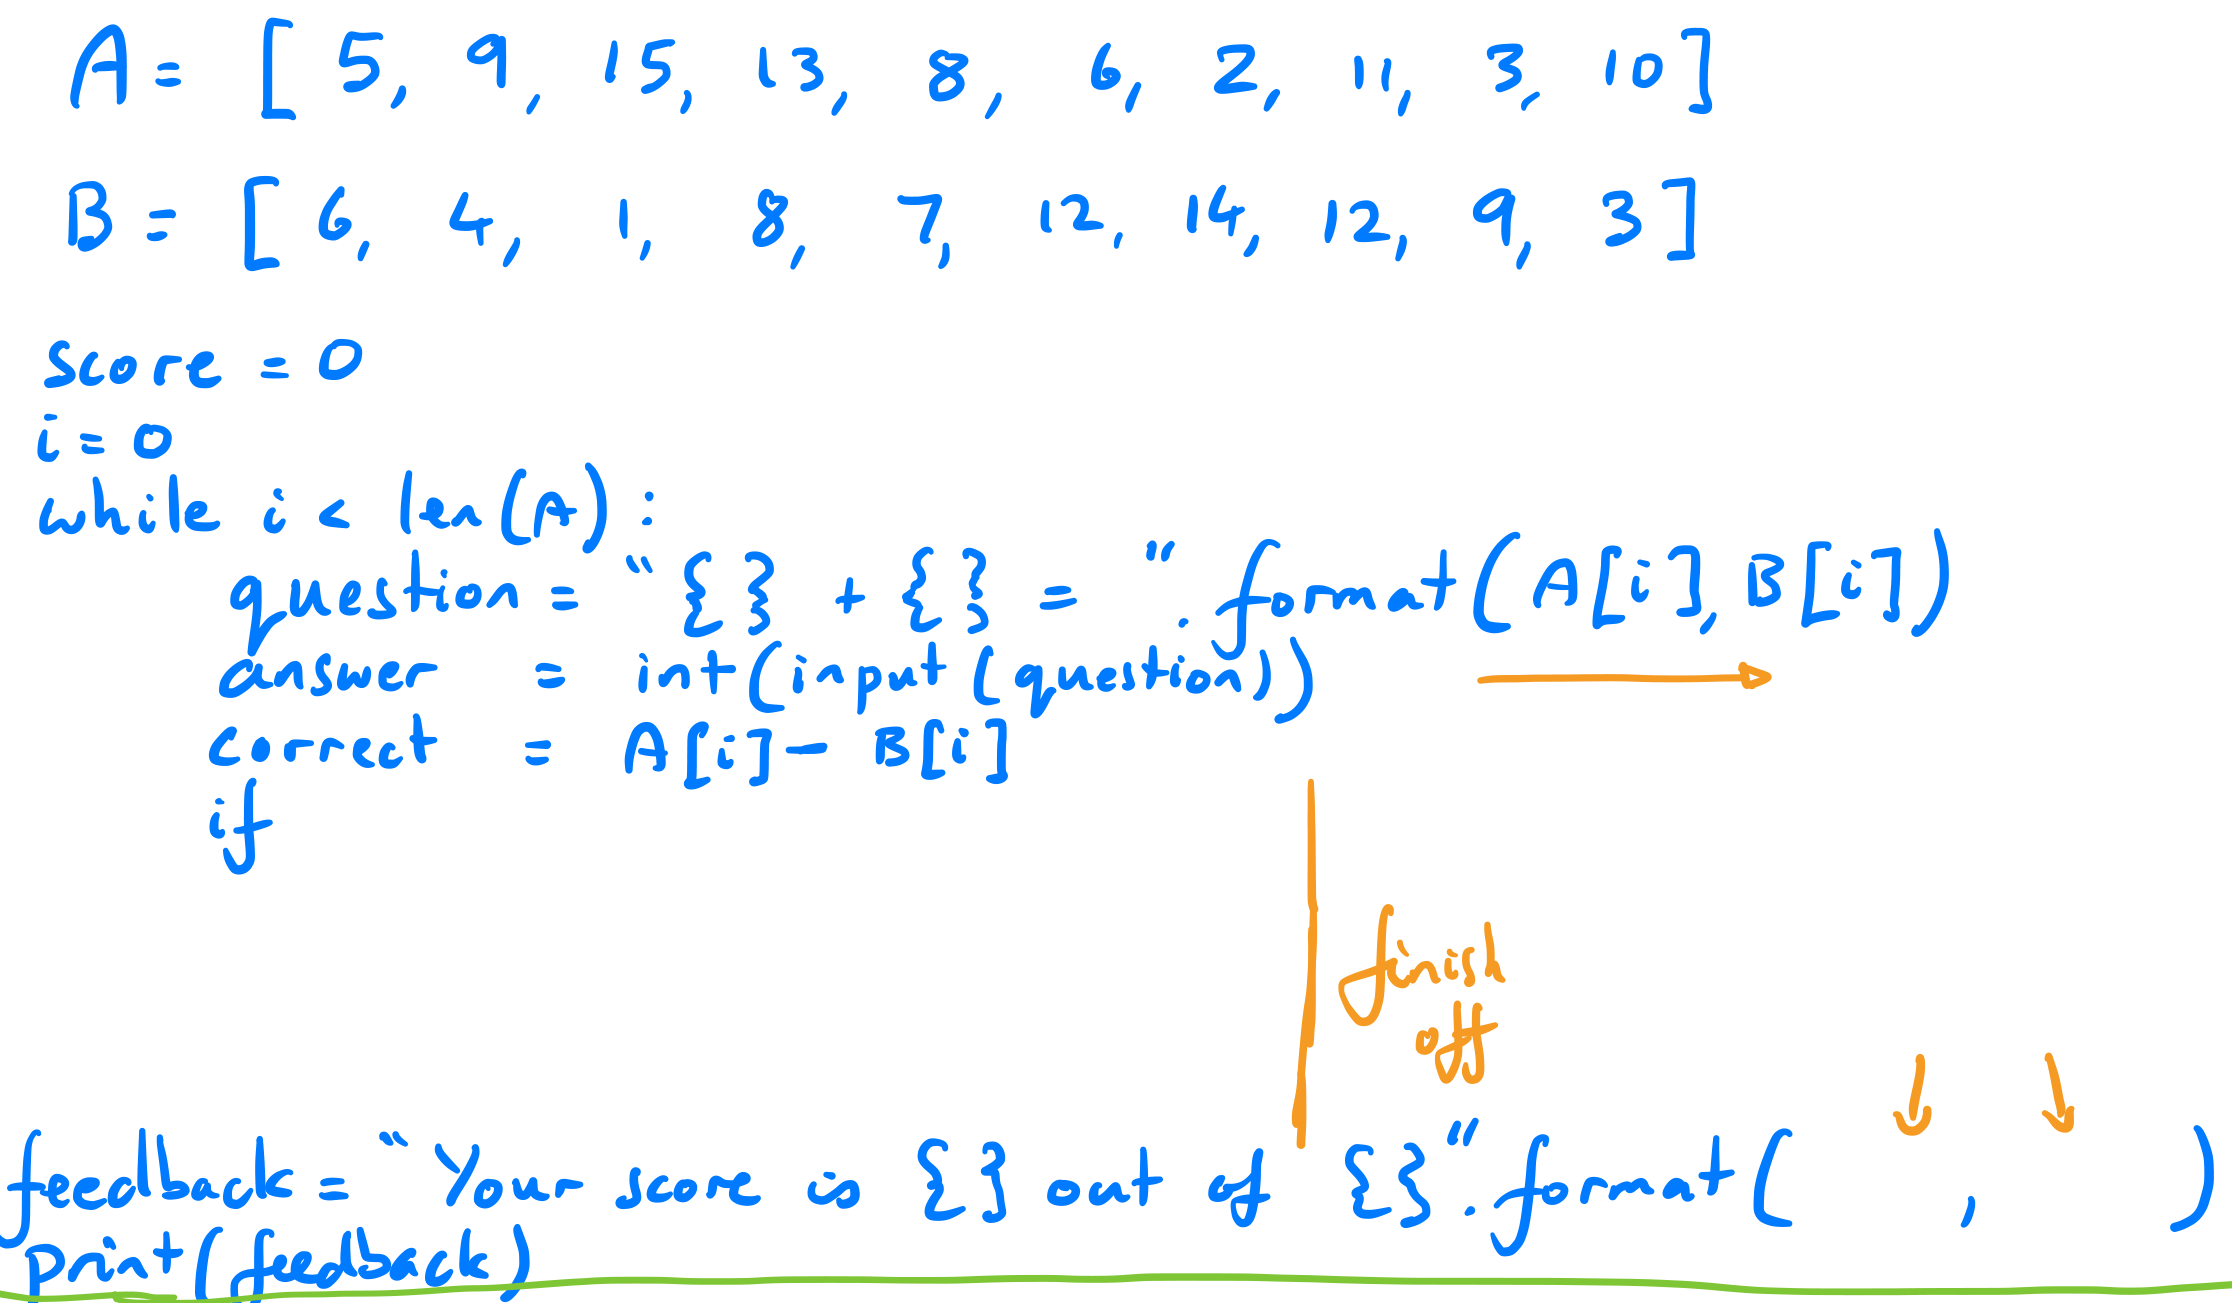 A = [ 5, 9, 15, 13, 8, 6, 2, 11, 3, 10 ]
B = [ 6, 4, 1, 8, 7, 12, 14, 12, 9, 3 ]
score = 0
i = 0
while i < len(A) :
question = "{ } + { } = ".format(A[i], B[i])
answer = int(input(question))
correct = A[i] - B[i]
if
finish
off
feedback = "Your score is { } out of { }".format( , )
print(feedback)